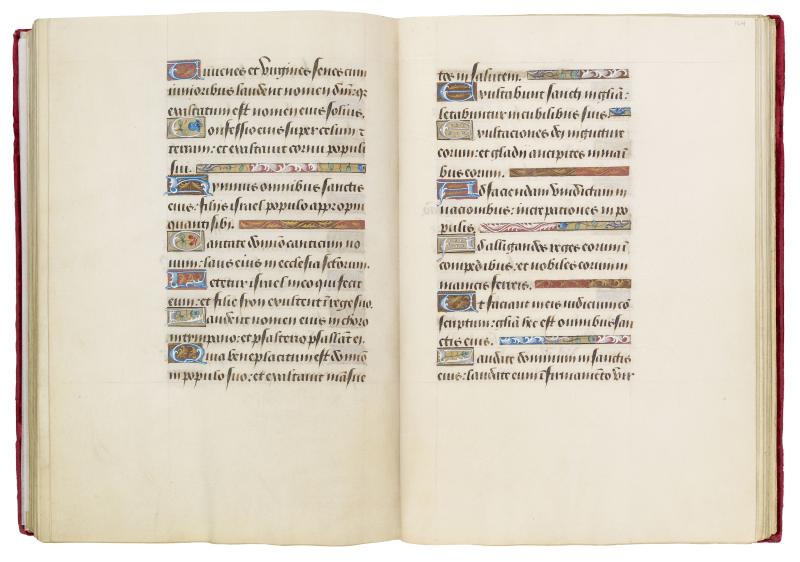 Iuuenes et virgines senes cum
iunioribus laudent nomen dni: q̄
exaltatum est nomen eius solius.
Confessio eius super celum ⁊
terram: et exaltauit cornu populi
sui.
Hymnus omnibus sanctis
eius: filijs israel populo appropin
quanti sibi.
Cantate domino canticum no
uum: laus eius in ecclesia sctorum.
Letetur israel in eo qui fecit
eum: et filie syon exultent ī rege suo.
Laudent nomen eius in choro
in tympano: et psalterio psallāt ei.
Quia beneplacitum est domino
in populo suo: et exaltauit māsue
tos in salutem.
Exultabunt sancti in glīa:
letabuntur in cubilibus suis.
Exultaciones dei in gutture
eorum: et gladij ancipites in mani
bus eorum.
Ad faciendam vindictam in
nacionibus: increpationes in po
pulis.
Ad alligandos reges eorum ī
compedibus: et nobiles eorum in
manicis ferreis.
Et faciant in eis iudicium cō
scriptum: glīa hec est omnibus san
ctis eius.
Laudate dominum in sanctis
eius: laudate eum ī firmamēto vir